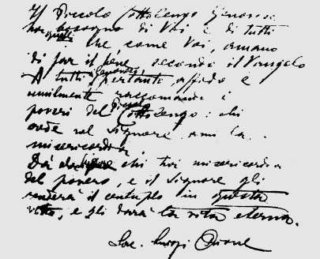 Il Piccolo Cottolengo Genovese
ha bisogno di Voi e di tutti
quelli che, come Voi, amano
di far il bene secondo il Vangelo
A tutti pertanto affido e
umilmente raccomando i
poveri del Piccolo Cottolengo: chi
crede nel Signore ami la
misericordia.
Dà al Signore chi usi misericordia
del povero, e il Signore gli
renderà il centuplo in questa
vita, e gli darà la vita eterna.
Sac. Luigi Orione